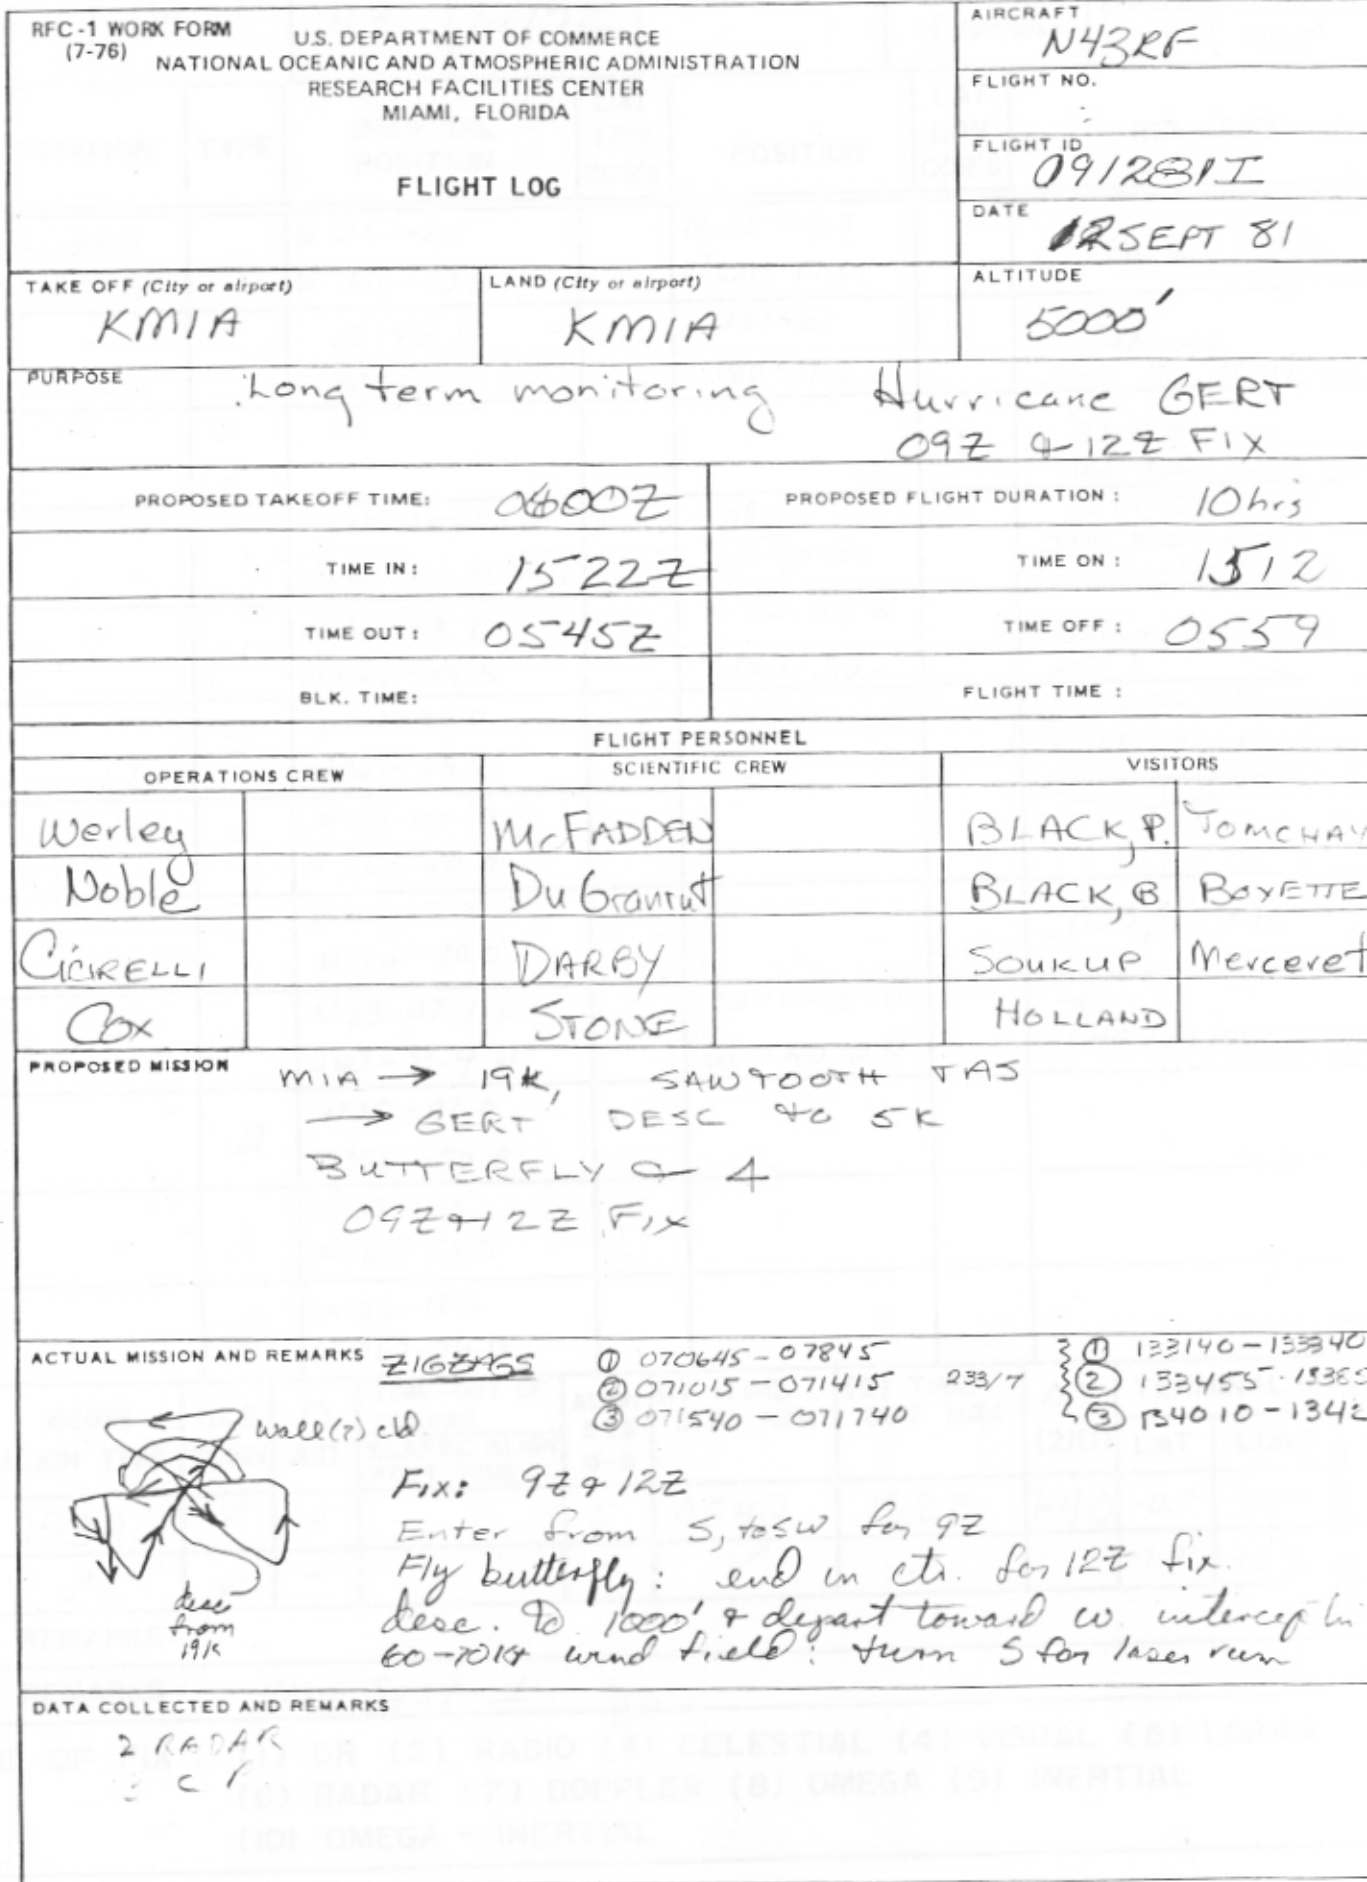 RFC-1 WORK FORM
(7-76)
U.S. DEPARTMENT OF COMMERCE
NATIONAL OCEANIC AND ATMOSPHERIC ADMINISTRATION
RESEARCH FACILITIES CENTER
MIAMI, FLORIDA
FLIGHT LOG
AIRCRAFT
N43RF
FLIGHT NO.
FLIGHT ID
091281I
DATE
12 SEPT 81
TAKE OFF (City or airport)
KMIA
LAND (City or airport)
KMIA
ALTITUDE
5000'
PURPOSE
Long term monitoring Hurricane GERT
09Z & 12Z FIX
PROPOSED TAKEOFF TIME: 0600Z
PROPOSED FLIGHT DURATION: 10hrs
TIME IN: 1522Z
TIME ON: 1512
TIME OUT: 0545Z
TIME OFF: 0559
BLK. TIME:
FLIGHT TIME:
FLIGHT PERSONNEL
OPERATIONS CREW SCIENTIFIC CREW VISITORS
Werley McFADDEN BLACK, P. TOMCHAY
Noble BLACK, B BOYETTE
CICIRELLI DARBY SOUKUP Merceret
COX STONE HOLLAND
PROPOSED MISSION
MIA → 19K, SAWTOOTH TAS
→ GERT DESC to 5K
BUTTERFLY 4
09Z & 12Z FIX
ACTUAL MISSION AND REMARKS
ZIGZAGS
① 070645-07845
② 071015-071415
③ 071540-071740
233/7
① 133140-133340
② 133455-13365
③ 134010-1342
wall(?) cld
desc
from
19K
FIX: 9Z & 12Z
Enter from S, to SW for 9Z
Fly butterfly: end in ctr. for 12Z fix.
desc. to 1000' & depart toward w. intercept in
60-70kt wind field: turn S for laser run
DATA COLLECTED AND REMARKS
2 RADAR